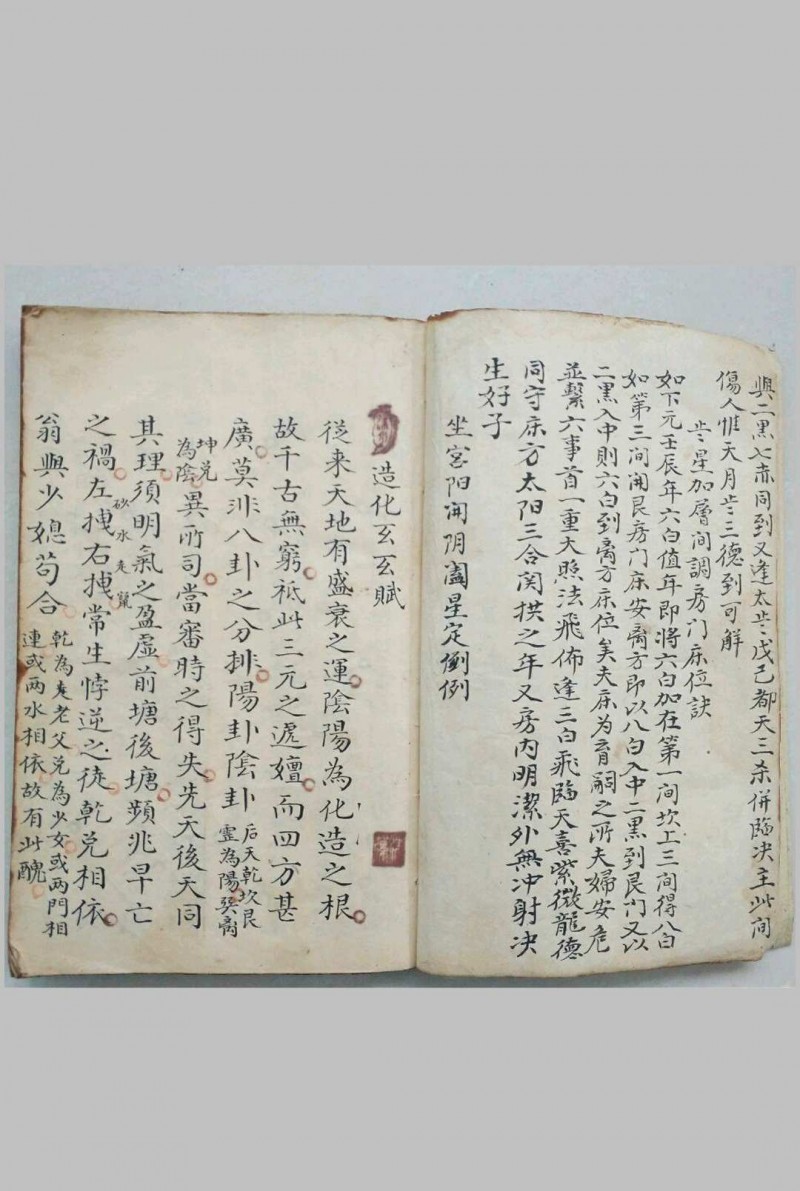 與二黒七赤同到又逢太歲戊己都天三杀併臨决主此间
傷人惟天月歲三德到可解
歲星加層间調房门床位訣
如下元壬辰年六白值年即將六白加在第一间坎上三间得八白
如第三间開艮房门床安离方即以八白入中二黒到艮门又以
二黒入中則六白到离方床位矣夫床为育嗣之所夫婦安危
並繫六事首一重大照法飛佈逢三白飛臨天喜紫微龍德
同守床方太阳三合関拱之年又房内明潔外無冲射决
生好子
坐宮阳開阴闔星定例
造化玄玄賦
從来天地有盛衰之運陰陽為化造之根
故千古無窮祗此三元之遞嬗而四方甚
廣莫非八卦之分排陽卦陰卦后天乾坎艮
震為陽巽离
坤兑
為陰異所司當審時之得失先天後天同
其理須明氣之盈虛前塘後塘頻兆早亡
之禍左拽右拽常生悖逆之徒乾兑相依
砂水走竄
翁與少媳苟合乾為夫老父兑為少女或两門相
連或两水相依故有此醜